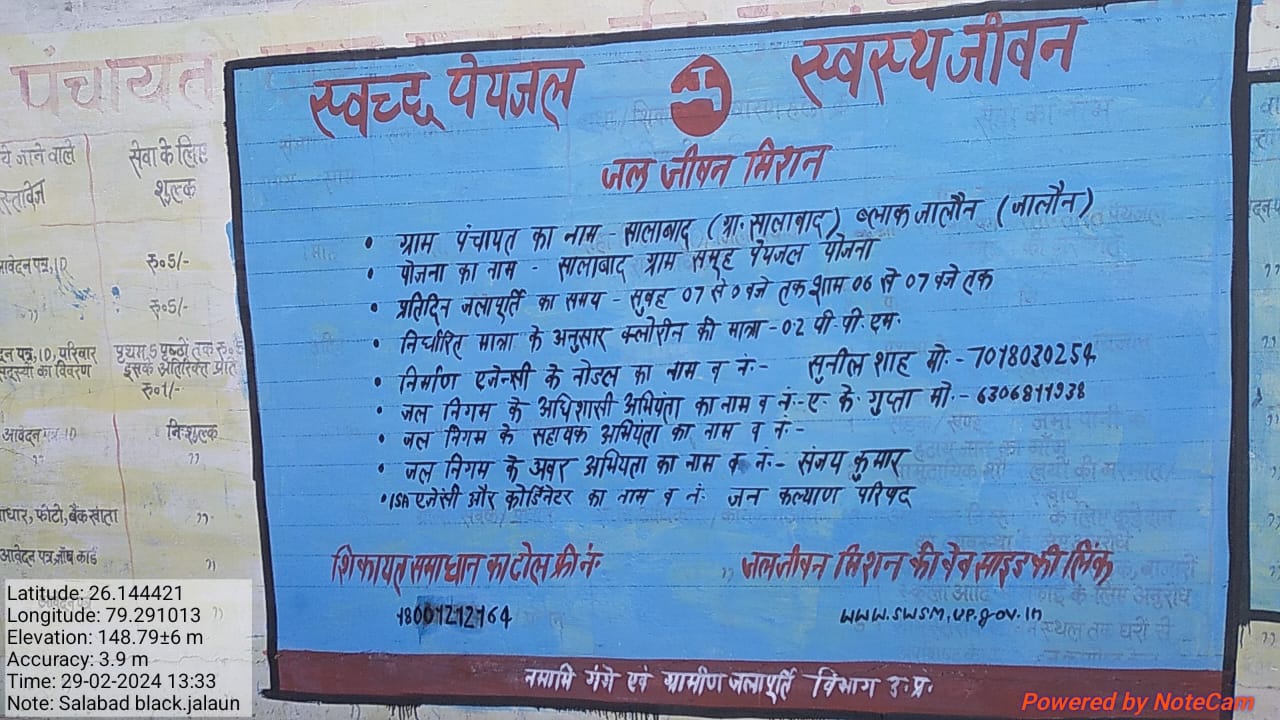 पंचायत
स्वच्छ पेयजल
स्वस्थ जीवन
जल जीवन मिशन
• ग्राम पंचायत का नाम - सालाबाद (ग्रा. सालाबाद) ब्लाक जालौन (जालौन)
• योजना का नाम - सालाबाद ग्राम समूह पेयजल योजना
• प्रतिदिन जलापूर्ति का समय - सुबह 07 से 0 बजे तक शाम 06 से 07 बजे तक
• निर्धारित मात्रा के अनुसार क्लोरीन की मात्रा - 0.2 पी.पी.एम.
• निर्माण एजेन्सी के नोडल का नाम व नं:- सुनील शाह मो:- 7018030254
• जल निगम के अधिशासी अभियंता का नाम व नं:- ए के. गुप्ता मो:- 6306811938
• जल निगम के सहायक अभियंता का नाम व नं:-
• जल निगम के अवर अभियता का नाम व नं:- संजय कुमार
• ISA एजेंसी और कोर्डिनेटर का नाम व नं: जन कल्याण परिषद
शिकायत समाधान का टोल फ्री नं:
18001212164
जल जीवन मिशन की वेब साइड की लिंक
www.swsm.up.gov.in
नमामि गंगे एवं ग्रामीण जलापूर्ति विभाग उ.प्र.
ये जाने वाले
सेवा के लिए
शुल्क
आवेदन पत्र, ID
रु०5/-
"
रु०5/-
पत्र, ID, परिवार
पृथम 5 पृष्ठों तक
सदस्यों का विवरण
इसके अतिरिक्त प्रति
रु०1/-
आवेदन पत्र ID
निःशुल्क
"
"
आधार, फोटो, बैंक खाता
"
आवेदन पत्र, जॉब कार्ड
"
Latitude: 26.144421
Longitude: 79.291013
Elevation: 148.79±6 m
Accuracy: 3.9 m
Time: 29-02-2024 13:33
Note: Salabad black.jalaun
Powered by NoteCam